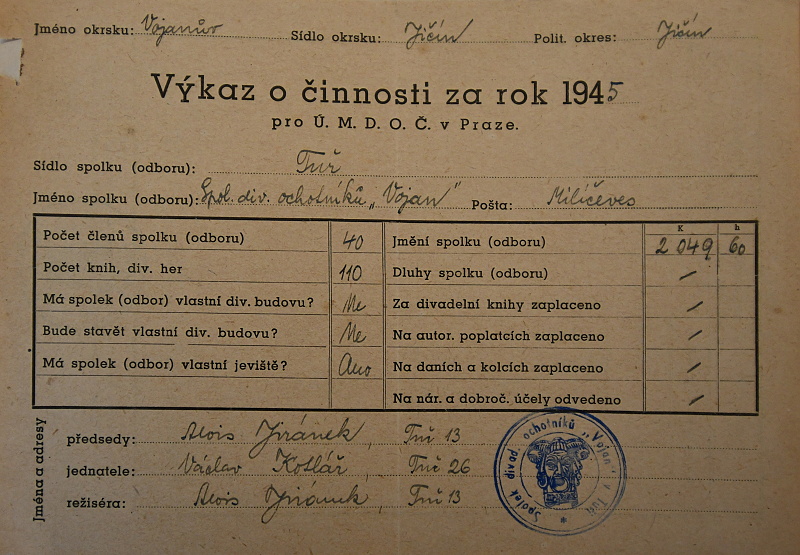 Jméno okrsku: Vojanův Sídlo okrsku: Jičín Polit. okres: Jičín
Výkaz o činnosti za rok 1945
pro Ú. M. D. O. Č. v Praze.
Sídlo spolku (odboru): Tuř
Jméno spolku (odboru): Spol. div. ochotníků „Vojan" Pošta: Milíčeves
K h
Počet členů spolku (odboru) 40 Jmění spolku (odboru) 2 049 60
Počet knih, div. her 110 Dluhy spolku (odboru) /
Má spolek (odbor) vlastní div. budovu? Ne Za divadelní knihy zaplaceno /
Bude stavět vlastní div. budovu? Ne Na autor. poplatcích zaplaceno /
Má spolek (odbor) vlastní jeviště? Ano Na daních a kolcích zaplaceno /
Na nár. a dobroč. účely odvedeno /
Jména a adresy
předsedy: Alois Jiránek, Tuř 13
jednatele: Václav Kotlář, Tuř 26
režiséra: Alois Jiránek, Tuř 13
Spolek divad. ochotníků „Vojan" v Tuři